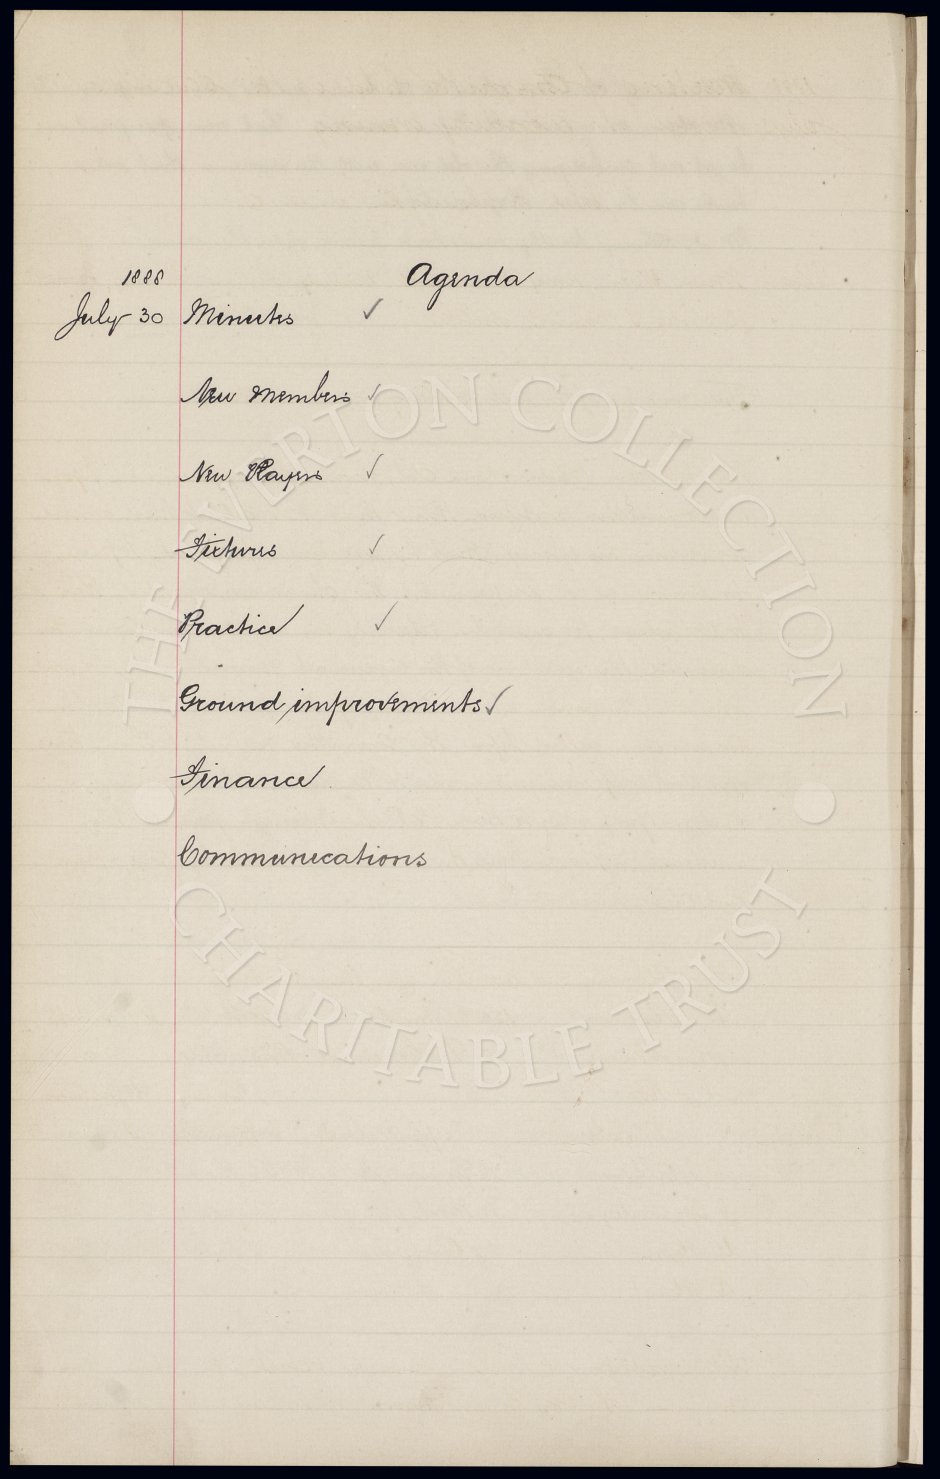 1888 Agenda
July 30 Minutes ✓
New Members ✓
New Players ✓
Fixtures ✓
Practice ✓
Ground improvements ✓
Finance
Communications
• THE EVERTON COLLECTION •
CHARITABLE TRUST